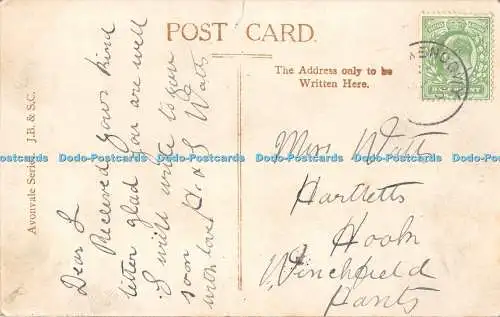 POST CARD.
The Address only to be
Written Here.
Avonvale Series. J.B. & S.C.
Dear L
Received yours kind
letter glad you are well
I will write to you
soon
with love H. & S Watts
Miss Watt
Hartletts
Hook
Winchfield
Hants
Dodo-Postcards Dodo-Postcards Dodo-Postcards Dodo-Postcards